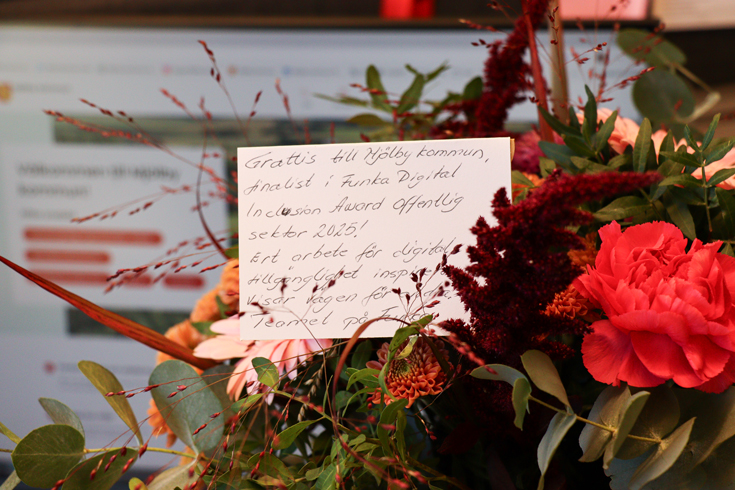 Grattis till Mjölby kommun,
finalist i Funka Digital
Inclusion Award Offentlig
sektor 2025!
Ert arbete för digital
tillgänglighet
visar vägen för
Teamet på
Välkommen till Mjölby
kommun!